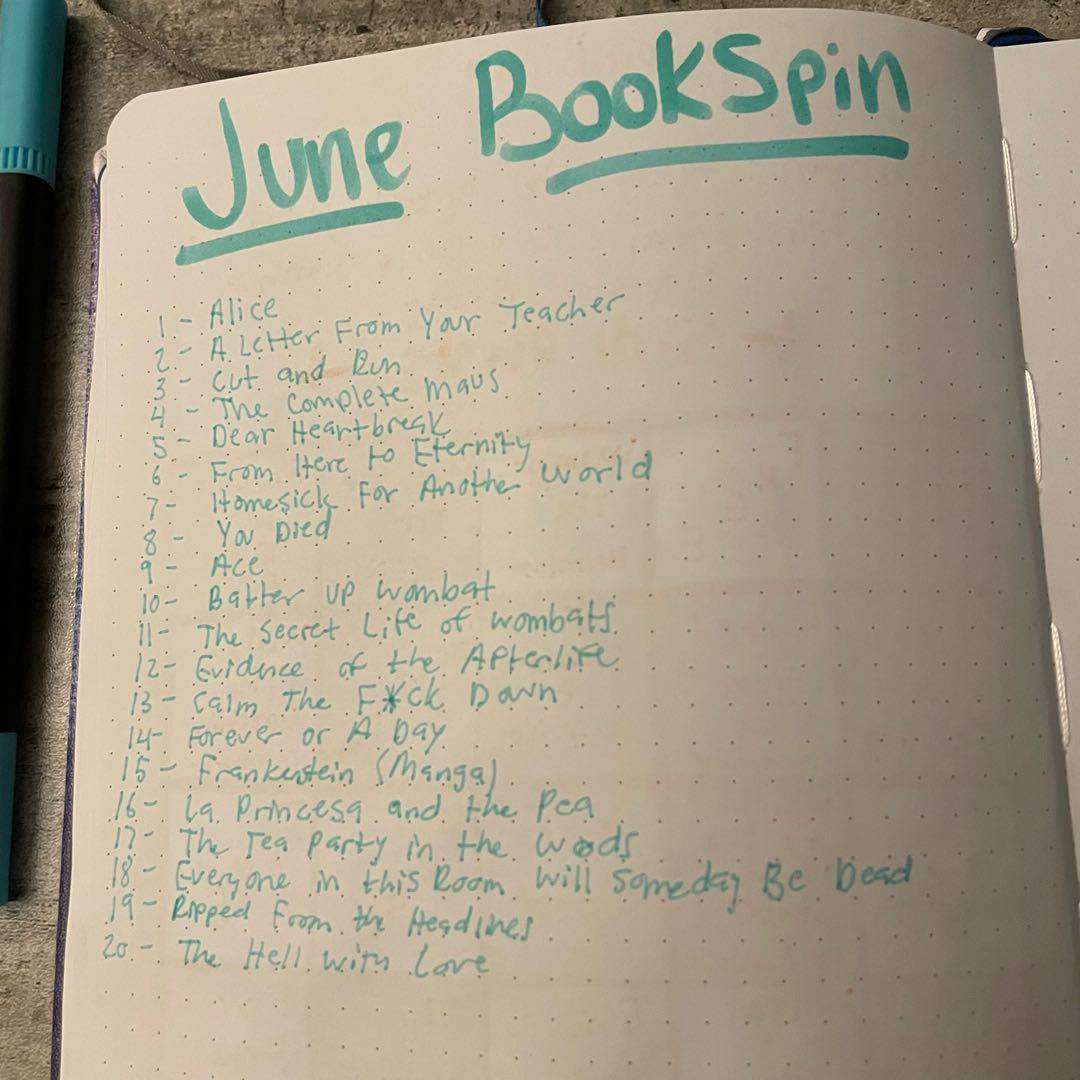 June BookSpin
1 - Alice
2 - A Letter From Your Teacher
3 - Cut and Run
4 - The Complete Maus
5 - Dear Heartbreak
6 - From Here to Eternity
7 - Homesick For Another World
8 - You Died
9 - Ace
10 - Batter up Wombat
11 - The Secret Life of Wombats
12 - Evidnce of the Afterlife
13 - Calm The F*ck Down
14 - Forever or A Day
15 - Frankenstein (Manga)
16 - La Princesa and the Pea
17 - The Tea Party in the Woods
18 - Everyone in this Room Will Someday Be Dead
19 - Ripped From the Headlines
20 - The Hell with Love